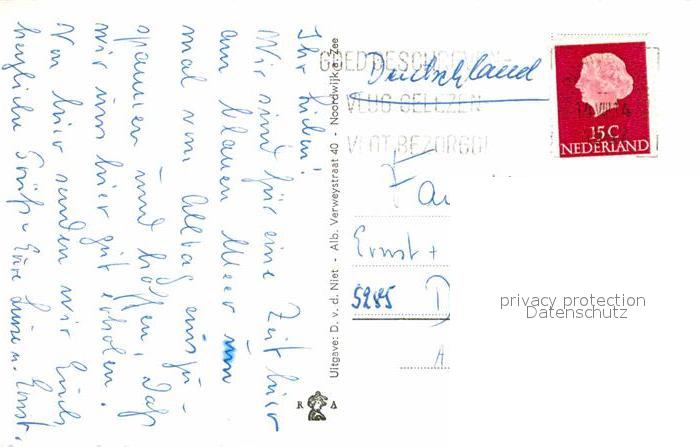 Ihr Lieben!
Wir sind für eine Zeit hier
am blauen Meer um
mal vom Alltag auszu-
spannen und hoffen, daß
wir uns hier gut erholen.
Von hier senden wir Euch
herzliche Grüße Eure u. Ernst.
Uitgave: D. v. d. Niet - Alb. Verweystraat 40 - Noordwijk a. Zee
R A
GOED GESCHREVEN
VLUG GELEZEN
VLOT BEZORGD
Deutschland
15 C
NEDERLAND
Fa
Ernst +
5285 D
A
privacy protection
Datenschutz